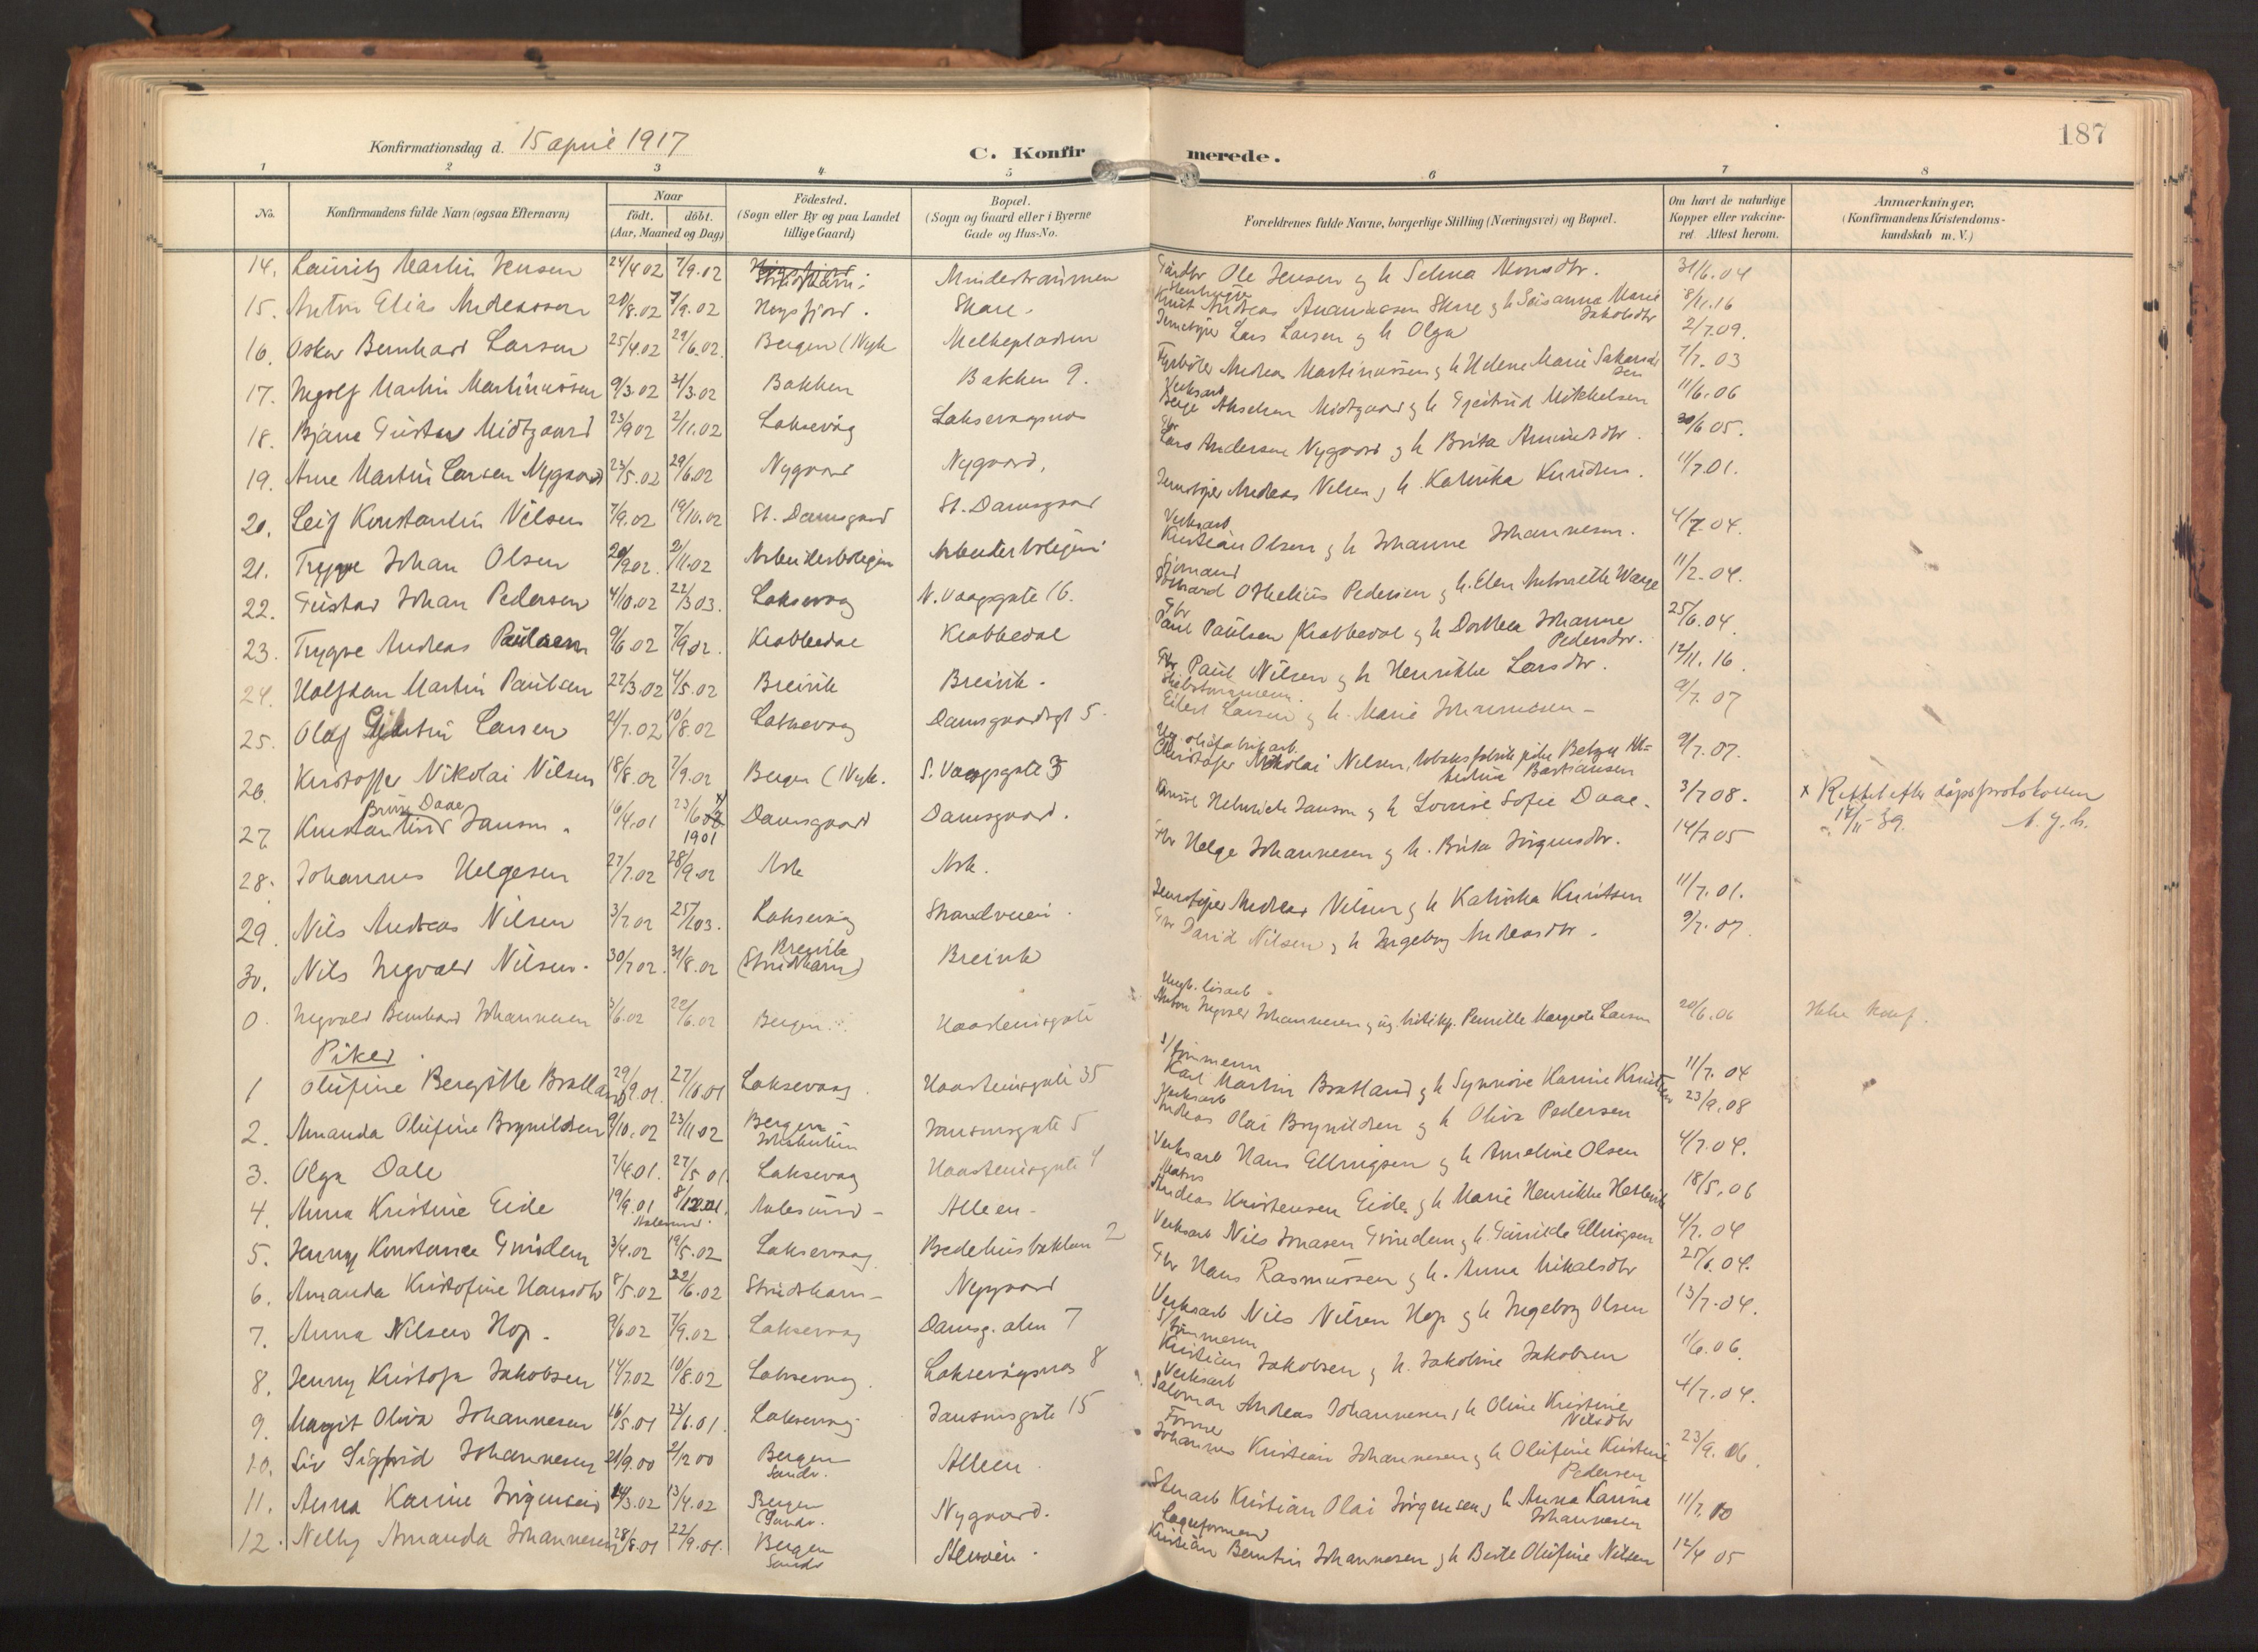 187
Konfirmationsdag d. 15 april 1917
C. Konfirmerede.
1 2 3 4 5 6 7 8
No. Konfirmandens fulde Navn (ogsaa Efternavn) Naar födt. döbt. (Aar, Maaned og Dag) Födested. (Sogn eller By og paa Landet tillige Gaard) Bopæl. (Sogn og Gaard eller i Byerne Gade og Hus-No. Forældrenes fulde Navne, borgerlige Stilling (Næringsvei) og Bopæl. Om havt de naturlige Kopper eller vakcineret. Attest herom. Anmærkninger. (Konfirmandens Kristendomskundskab m. V.)
14. Lauritz Martin Jensen 24/4 02 7/9.02 Mindestraumen Ole Jensen g h Selma Monsdtr. 31/6.04
15. Anton Elias Andreassen 20/8.02 7/9.02 Høgsfjord. Skare. Knut Andreas Skare g h Susanna Marie Jakobsdtr 8/11.16
16. Oskar Bernhard Larsen 25/4.02 29/6.02. Bergen (Nyk Melkepladsen Lars Larsen g h Olga 2/7.09.
17. Ingolf Martin Martinussen 9/3.02 31/3.02 Bakken Bakken 9. Fyrbøter Andreas Martinussen g h Helene Marie 7/7.03
18. Bjarne Gustav Midtgaard 23/9 02 2/11.02 Laksevåg Laksevagsnes Verksarb. Akselsen Midtgaard g h Gjertrud Mikkelsen 11/6.06
19. Arne Martin Larsen Nygaard 23/5.02 29/6.02 Nygaard Nygaard. Gbr Lars Andersen Nygaard g h Brita Amundsdtr. 30/6 05.
20. Leif Konstantin Nilsen 7/9.02 19/10.02 St. Damsgaard St. Damsgaard Andreas Nilsen g h. Katinka Knudsen. 11/7.01.
21. Trygve Johan Olsen 20/9.02. 2/11.02 Arbeiderboligen Arbeiderboligen Verksarb. Kristian Olsen g h Johanne Johannesen. 4/7.04.
22. Gustav Johan Pedersen 4/10.02 22/3 03. Laksevaag N. Vaagsgate 16. Sjømand Othelius Pedersen g h. Elen Antonette Waage 11/2.04.
23. Trygve Andreas Paulsen 9/6 02 7/9 02. Krabbedal Krabbedal Gbr Paul Paulsen Krabbedal g h Dorthea Johanne Pedersdtr. 25/6.04.
24. Halfdan Martin Paulsen 27/3.02 4/5.02 Breivik Breivik. Gbr Paul Nilsen g h Henrikke Larsdtr. 12/11.16
25. Olaf Larsen 21/7.02 10/8.02 Laksevaag Damsgaardsgt 5. Skibstømmerm. Eilert Larsen g h. Marie Johannesen - 9/7.07
26. Kristoffer Nikolai Nilsen 18/8.02 7/9.02 Bergen (Nyk. S. Vaagsgate 3 Nikolai Nilsen, Bastiansen 9/7.07.
27. Konstantin Brun Daae Janson. 16/4.01 23/6 02 x) 1901 Damsgaard Damsgaard. Konsul Helmich Janson g h Louise Sofie Daae. 3/7 08. x Rettet efter dåpsprotokollen 17/11-39.
28. Johannes Helgesen 27/7.02 28/9.02 Ask Ask. Gbr Helge Johannesen g h. Brita Jørgensdtr. 14/7.05
29. Nils Andreas Nilsen 3/7 02 25/1 03. Laksevåg Strandveien. Andreas Nilsen g h Katinka Knutsen 11/7.01.
30. Nils Ingvald Nilsen. 30/7 02. 31/8.02 Breivik (Strudshavn) Breivik Gbr David Nilsen g h Ingeborg Andreasdtr. 9/7.07
0. Ingvald Bernhard Johannesen 3/6.02 22/6.02 Bergen Haasteinsgate Ungk. Anton Ingvald Johannesen g Pernille Margrete Larsen 20/6.06 Ikke konf.
Piker
1 Olufine Bergitte Bratland 29/9.01. 27/10.01 Laksevaag Haasteinsgate 35 S/tømmerm Karl Martin Bratland g h Synnøve Karine 11/7.04
2. Amanda Olufine Brynildsen 9/10.02 23/11 02 Bergen - Johskirken Jansonsgate 5 Verksarb Andreas Olai Brynildsen g h Oliva Pedersen 23/9.08
3. Olga Dale 7/4 01. 27/5 01 Laksevaag Haasteinsgate 4 Verksarb Hans Ellingsen g h Ameline Olsen 4/7.04.
4. Anna Kristine Eide 19/9.01 Aalesund. 8/12.01. Aalesund - Alleen - Matros Andreas Kristensen Eide g h Marie Henrikke 18/5.06
5. Jenny Konstance Grindem 3/4.02 19/5.02 Laksevaag Bedehusbakken 2 Verksarb Nils Jonasen Grindem g h. Gunilde Ellingsen 4/7.04
6. Amanda Kristofine Hansdtr 8/5.02 22/6.02 Strudshavn - Nygaard Gbr Hans Rasmussen g h. Anna Mikalsdtr 25/6.04.
7. Anna Nilsen Hop. 9/6.02 7/9.02 Laksevaag Damsg. alen 7 Verksarb Nils Nilsen Hop g h Ingeborg Olsen 13/7.04.
8. Jenny Kristofa Jakobsen 14/7.02 10/8.02 Laksevaag. Laksevågsnes 8 S/tømmerm Kristian Jakobsen g h. Jakobine Jakobsen 11/6.06.
9. Margit Oliva Johannesen 16/5.01 23/6.01. Laksevaag Jansonsgate 15 Verksarb Salomon Andreas Johannesen g h Oline Kristine Nilsdtr 4/7.04.
10. Liv Sigfrid Johannesen 21/9.00 2/12 00 Bergen Sandv. Alleen Johannes Kristian Johannesen g h Olufine Kristine Pedersen 23/9.06.
11. Anna Karine Jørgensen 14/3.02 13/4.02 Bergen (Sandv. Nygaard. Stenarb Kristian Olai Jørgensen g h Anna Karina Johannesen 11/7.10
12. Nelly Amanda Johannesen 28/8.01 22/9.01. Bergen Sandv Lagerformand Kristian Berntin Johannesen g h Berte Olufine Nilsen 12/4 05